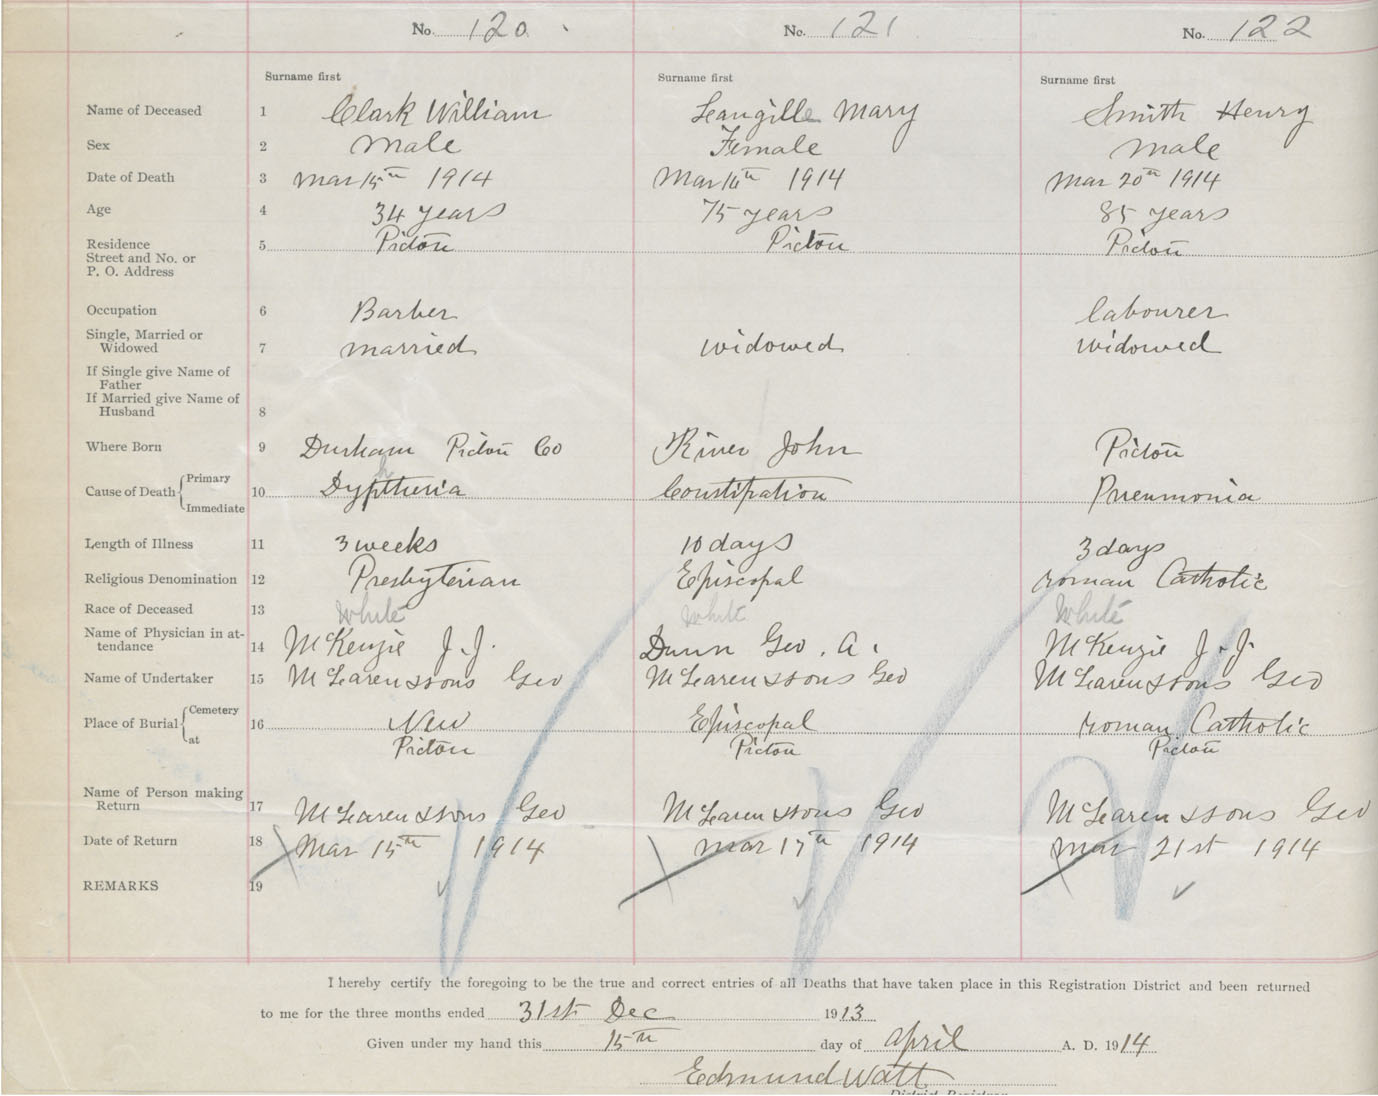 No. 120 No. 121 No. 122
Surname first Surname first Surname first
Name of Deceased 1 Clark William Langille Mary Smith Henry
Sex 2 Male Female Male
Date of Death 3 Mar 15th 1914 Mar 16th 1914 Mar 20th 1914
Age 4 34 years 75 years 85 years
Residence 5 Pictou Pictou Pictou
Street and No. or
P. O. Address
Occupation 6 Barber labourer
Single, Married or
Widowed 7 married widowed widowed
If Single give Name of
Father
If Married give Name of
Husband 8
Where Born 9 Durham Pictou Co River John Pictou
Cause of Death { Primary
10 Dyptheria Constipation Pneumonia
Immediate
Length of Illness 11 3 weeks 10 days 3 days
Religious Denomination 12 Presbyterian Episcopal roman Catholic
Race of Deceased 13 White White White
Name of Physician in at-
tendance 14 McKenzie J. J. Dunn Geo. A. McKenzie J. J.
Name of Undertaker 15 McLaren & sons Geo McLaren & sons Geo McLaren & sons Geo
Place of Burial { Cemetery 16 New Episcopal roman Catholic
at Pictou Pictou Pictou
Name of Person making
Return 17 McLaren & sons Geo McLaren & sons Geo McLaren & sons Geo
Date of Return 18 Mar 15th 1914 Mar 17th 1914 Mar 21st 1914
REMARKS 19
I hereby certify the foregoing to be the true and correct entries of all Deaths that have taken place in this Registration District and been returned
to me for the three months ended 31st Dec 1913
Given under my hand this 15th day of April A. D. 1914
Edmund Watt
District Registrar